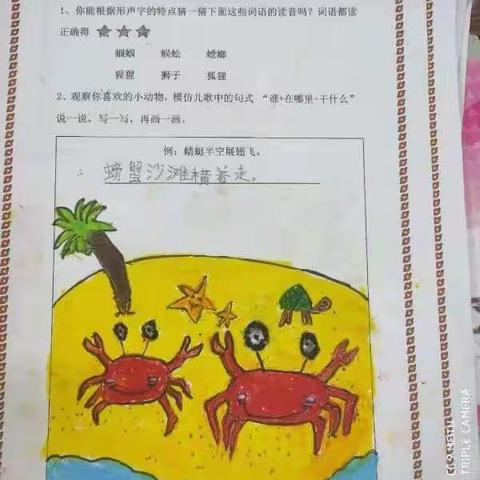 1、你能根据形声字的特点猜一猜下面这些词语的读音吗？词语都读
正确得
蝈蝈 蜈蚣 螳螂
猩猩 狮子 狐狸
2、观察你喜欢的小动物，模仿儿歌中的句式“谁+在哪里+干什么”
说一说，写一写，再画一画。
例：蜻蜓半空展翅飞。
螃蟹沙滩横着走。
TRIPLE CAMERA